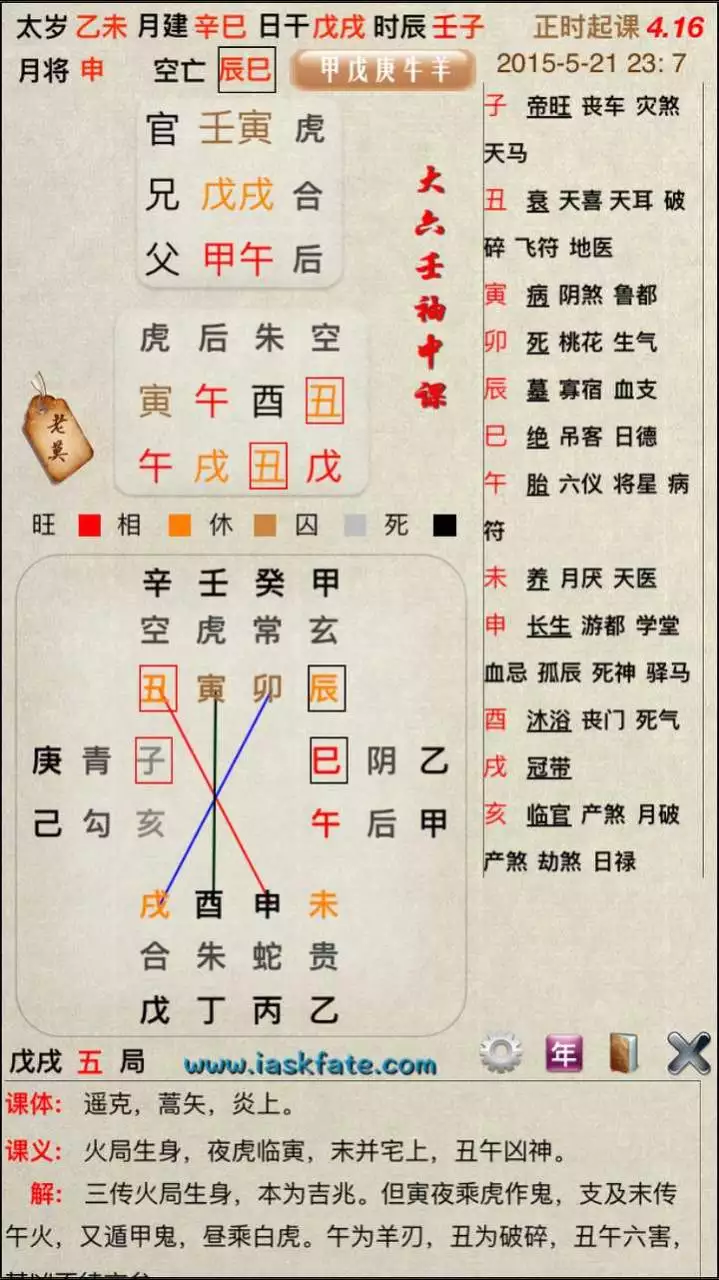 太岁 乙未 月建 辛巳 日干 戊戌 时辰 壬子 正时起课 4.16
月将 申 空亡 辰巳 甲戊庚牛羊 2015-5-21 23: 7
官 壬寅 虎
兄 戊戌 合
父 甲午 后
大六壬袖中课
虎 后 朱 空
寅 午 酉 丑
午 戌 丑 戊
老莫
旺 相 休 囚 死
辛 壬 癸 甲
空 虎 常 玄
丑 寅 卯 辰
庚 青 子 巳 阴 乙
己 勾 亥 午 后 甲
戌 酉 申 未
合 朱 蛇 贵
戊 丁 丙 乙
子 帝旺 丧车 灾煞
天马
丑 衰 天喜 天耳 破
碎 飞符 地医
寅 病 阴煞 鲁都
卯 死 桃花 生气
辰 墓 寡宿 血支
巳 绝 吊客 日德
午 胎 六仪 将星 病
符
未 养 月厌 天医
申 长生 游都 学堂
血忌 孤辰 死神 驿马
酉 沐浴 丧门 死气
戌 冠带
亥 临官 产煞 月破
产煞 劫煞 日禄
戊戌 五 局 www.iaskfate.com 年
课体: 遥克，蒿矢，炎上。
课义: 火局生身，夜虎临寅，末并宅上，丑午凶神。
解: 三传火局生身，本为吉兆。但寅夜乘虎作鬼，支及末传
午火，又遁甲鬼，昼乘白虎。午为羊刃，丑为破碎，丑午六害，